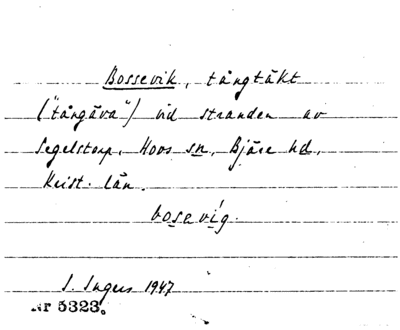 Bossevik, tångtäkt
("tångåva") vid stranden av
Segelstorp, Hovs sn, Bjäre hd,
Krist. län.
bosevíg.
S. Ingers 1947
Nr 5323.